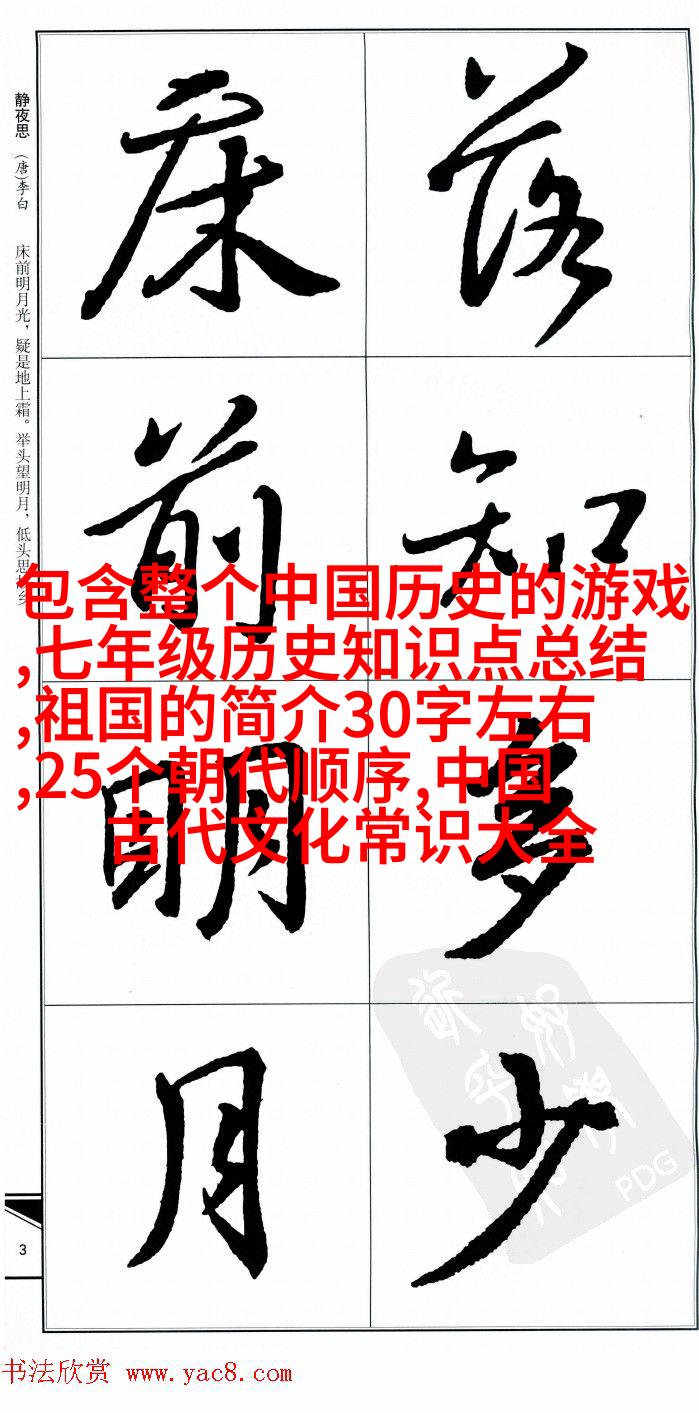 落知多少
床前明月
静夜思 (唐)李白 床前明月光，疑是地上霜。举头望明月，低头思乡
包含整个中国历史的游戏
,七年级历史知识点总结
,祖国的简介30字左右
,25个朝代顺序,中国
古代文化常识大全
PDG
3
书法欣赏 www.yac8.com